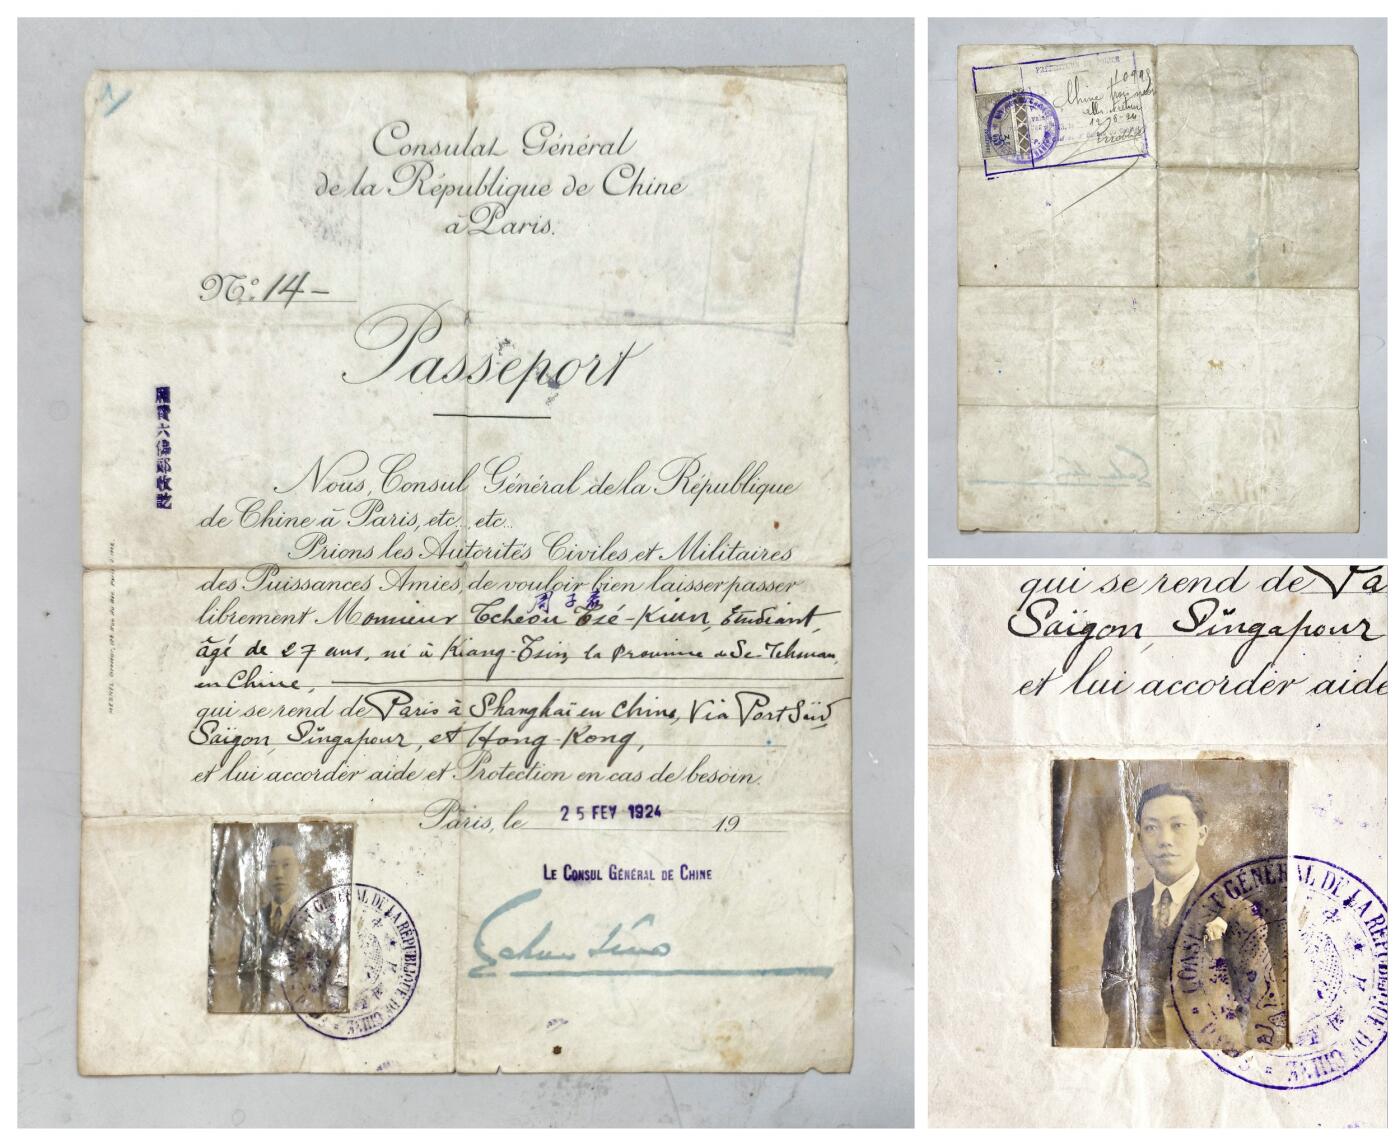 Consulat Général
de la République de Chine
à Paris.
N.º 14 –
Passeport
Nous, Consul Général de la République
de Chine à Paris, etc... etc...
Prions les Autorités Civiles et Militaires
des Puissances Amies, de vouloir bien laisser passer
周子君
librement Monsieur Tchéou Tsé-Kiun, Etudiant,
âgé de 27 ans, né à Kiang-Tsin, la Province de Se-Tchuan,
en Chine,
qui se rend de Paris à Shanghaï en Chine, Via Port Saïd,
Saïgon, Singapour, et Hong-Kong,
et lui accorder aide et Protection en cas de besoin.
Paris, le 25 FEV 1924 19
LE CONSUL GÉNÉRAL DE CHINE
CONSULAT GÉNÉRAL DE LA RÉPUBLIQUE DE CHINE
PRÉFECTURE DE POLICE
Chine
qui se rend de Pa
Saïgon, Singapour
et lui accorder aide
CONSULAT GÉNÉRAL DE LA RÉPUBLIQUE DE CHINE